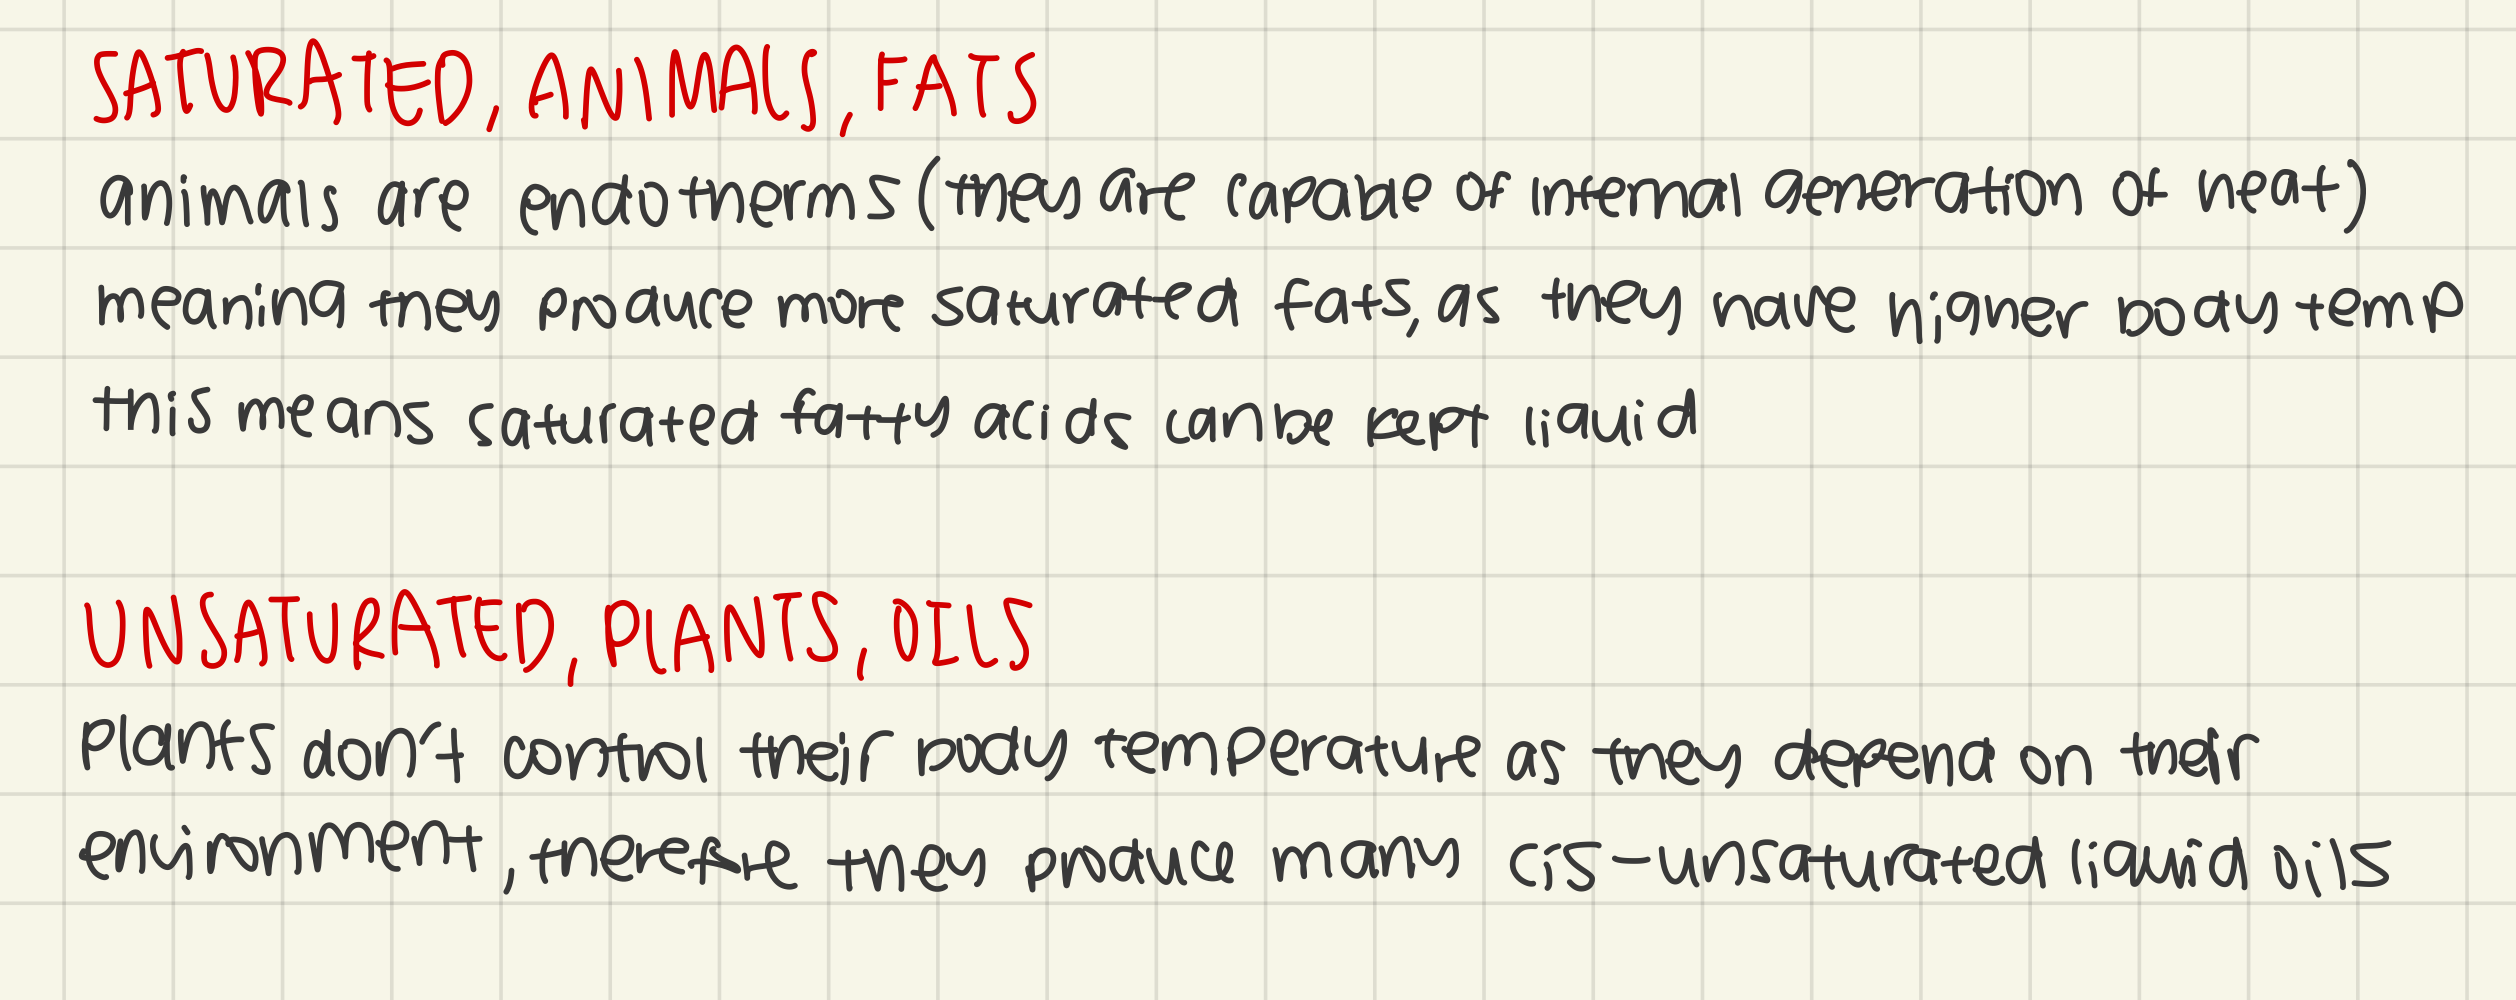 SATURATED, ANIMALS, FATS
animals are endotherms (they are capable of internal generation of heat)
meaning they produce more saturated fats, as they have higher body temp
this means saturated fatty acids can be kept liquid
UNSATURATED, PLANTS, OILS
Plants don't control their body temperature as they depend on their
environment, therefore they produce many cis-unsaturated liquid oils